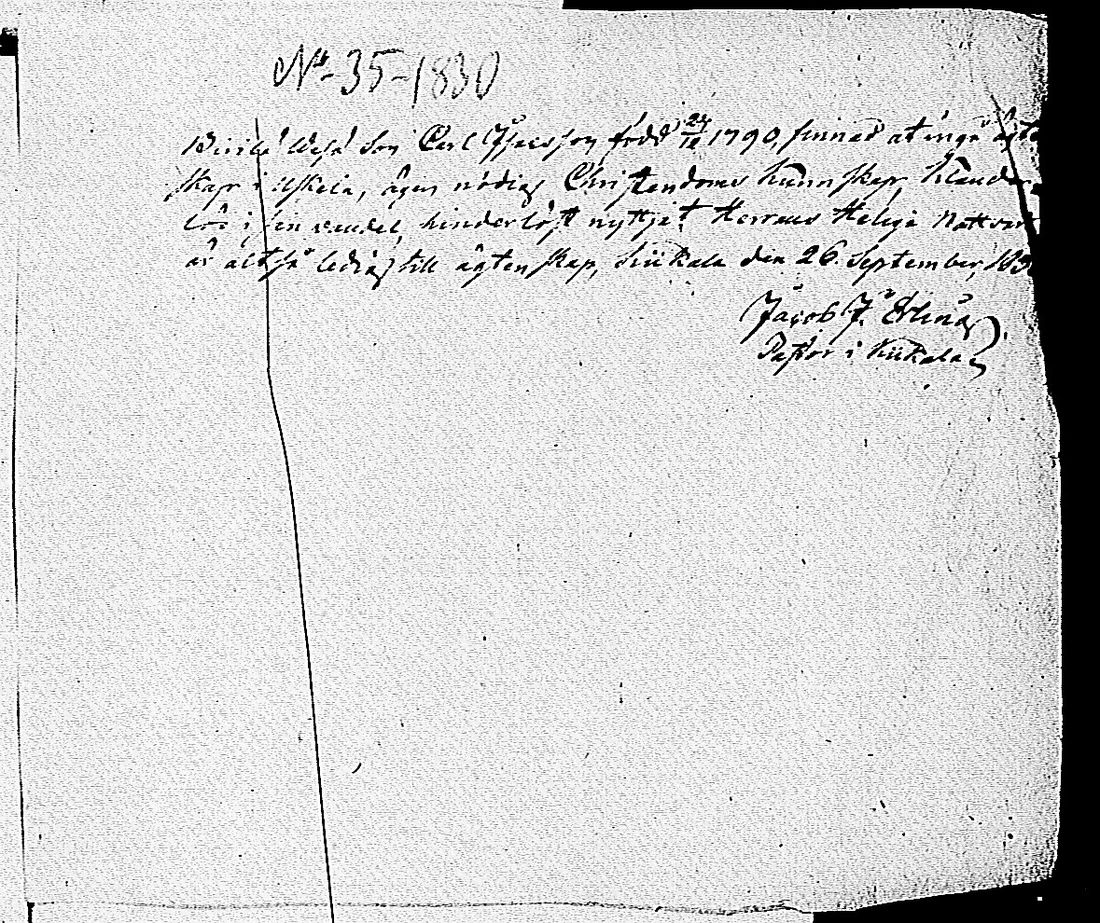 No 35-1830
son Carl Isacsson född 24/12 1790, sinnad at ingå ägte
skap i Uskela, ägen nödig Christendoms kunnskap, klander
lös i sin vandel, hinderlöst nyttjat Herrans Heliga Nattvard
är altså ledig till ägtenskap, Kiikala den 26. September, 183
Jacob J.
Pastor i Kiikala